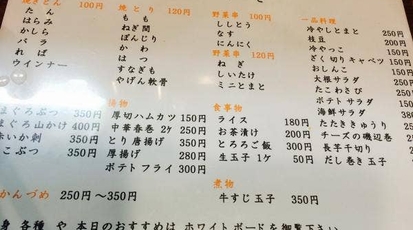 焼きとん 100円
たん
はらみ
かしら
バラ
ればー
ウインナー
焼とり 120円
もも
ねぎ間
ぼんじり
かわ
はつ
すなぎも
やげん軟骨
野菜串 100円
ししとう
なす
にんにく
野菜串 120円
ねぎ
しいたけ
ミニとまと
一品料理
冷やしとまと 250円
枝豆 200円
冷やっこ
おしんこ
ざく切りキャベツ
大根サラダ
たこわさび
ポテトサラダ
海鮮サラダ
たたききゅうり
チーズの磯辺巻
長芋千切り
だし巻き玉子
まぐろぶつ 350円
まぐろ山かけ 400円
赤いか刺 350円
こぶつ 350円
揚物
厚切ハムカツ 150円
中華春巻 2ケ 250円
とり唐揚げ 350円
厚揚げ 280円
ポテトフライ 300円
食事物
ライス 180円
お茶漬け 200円
とろろご飯 300円
生玉子 1ケ 50円
煮物
牛すじ玉子 350円
かんづめ 250円～350円
身 各種 や 本日のおすすめは ホワイトボードを御覧下さい